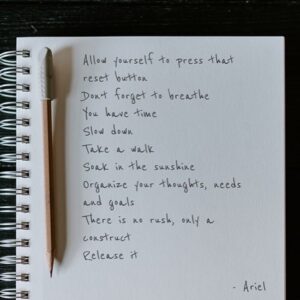 Allow yourself to press that
reset button
Dont forget to breathe
You have time
Slow down
Take a walk
Soak in the sunshine
Organize your thoughts, needs
and goals
There is no rush, only a
construct
Release it
- Ariel